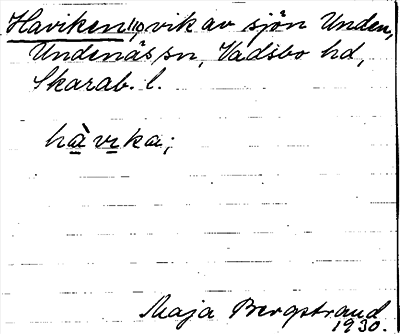 Haviken, vik av sjön Unden,
Undenäs sn, Vadsbo hd,
Skarab. l.
hàvika;
Maja Bergstrand
1930.